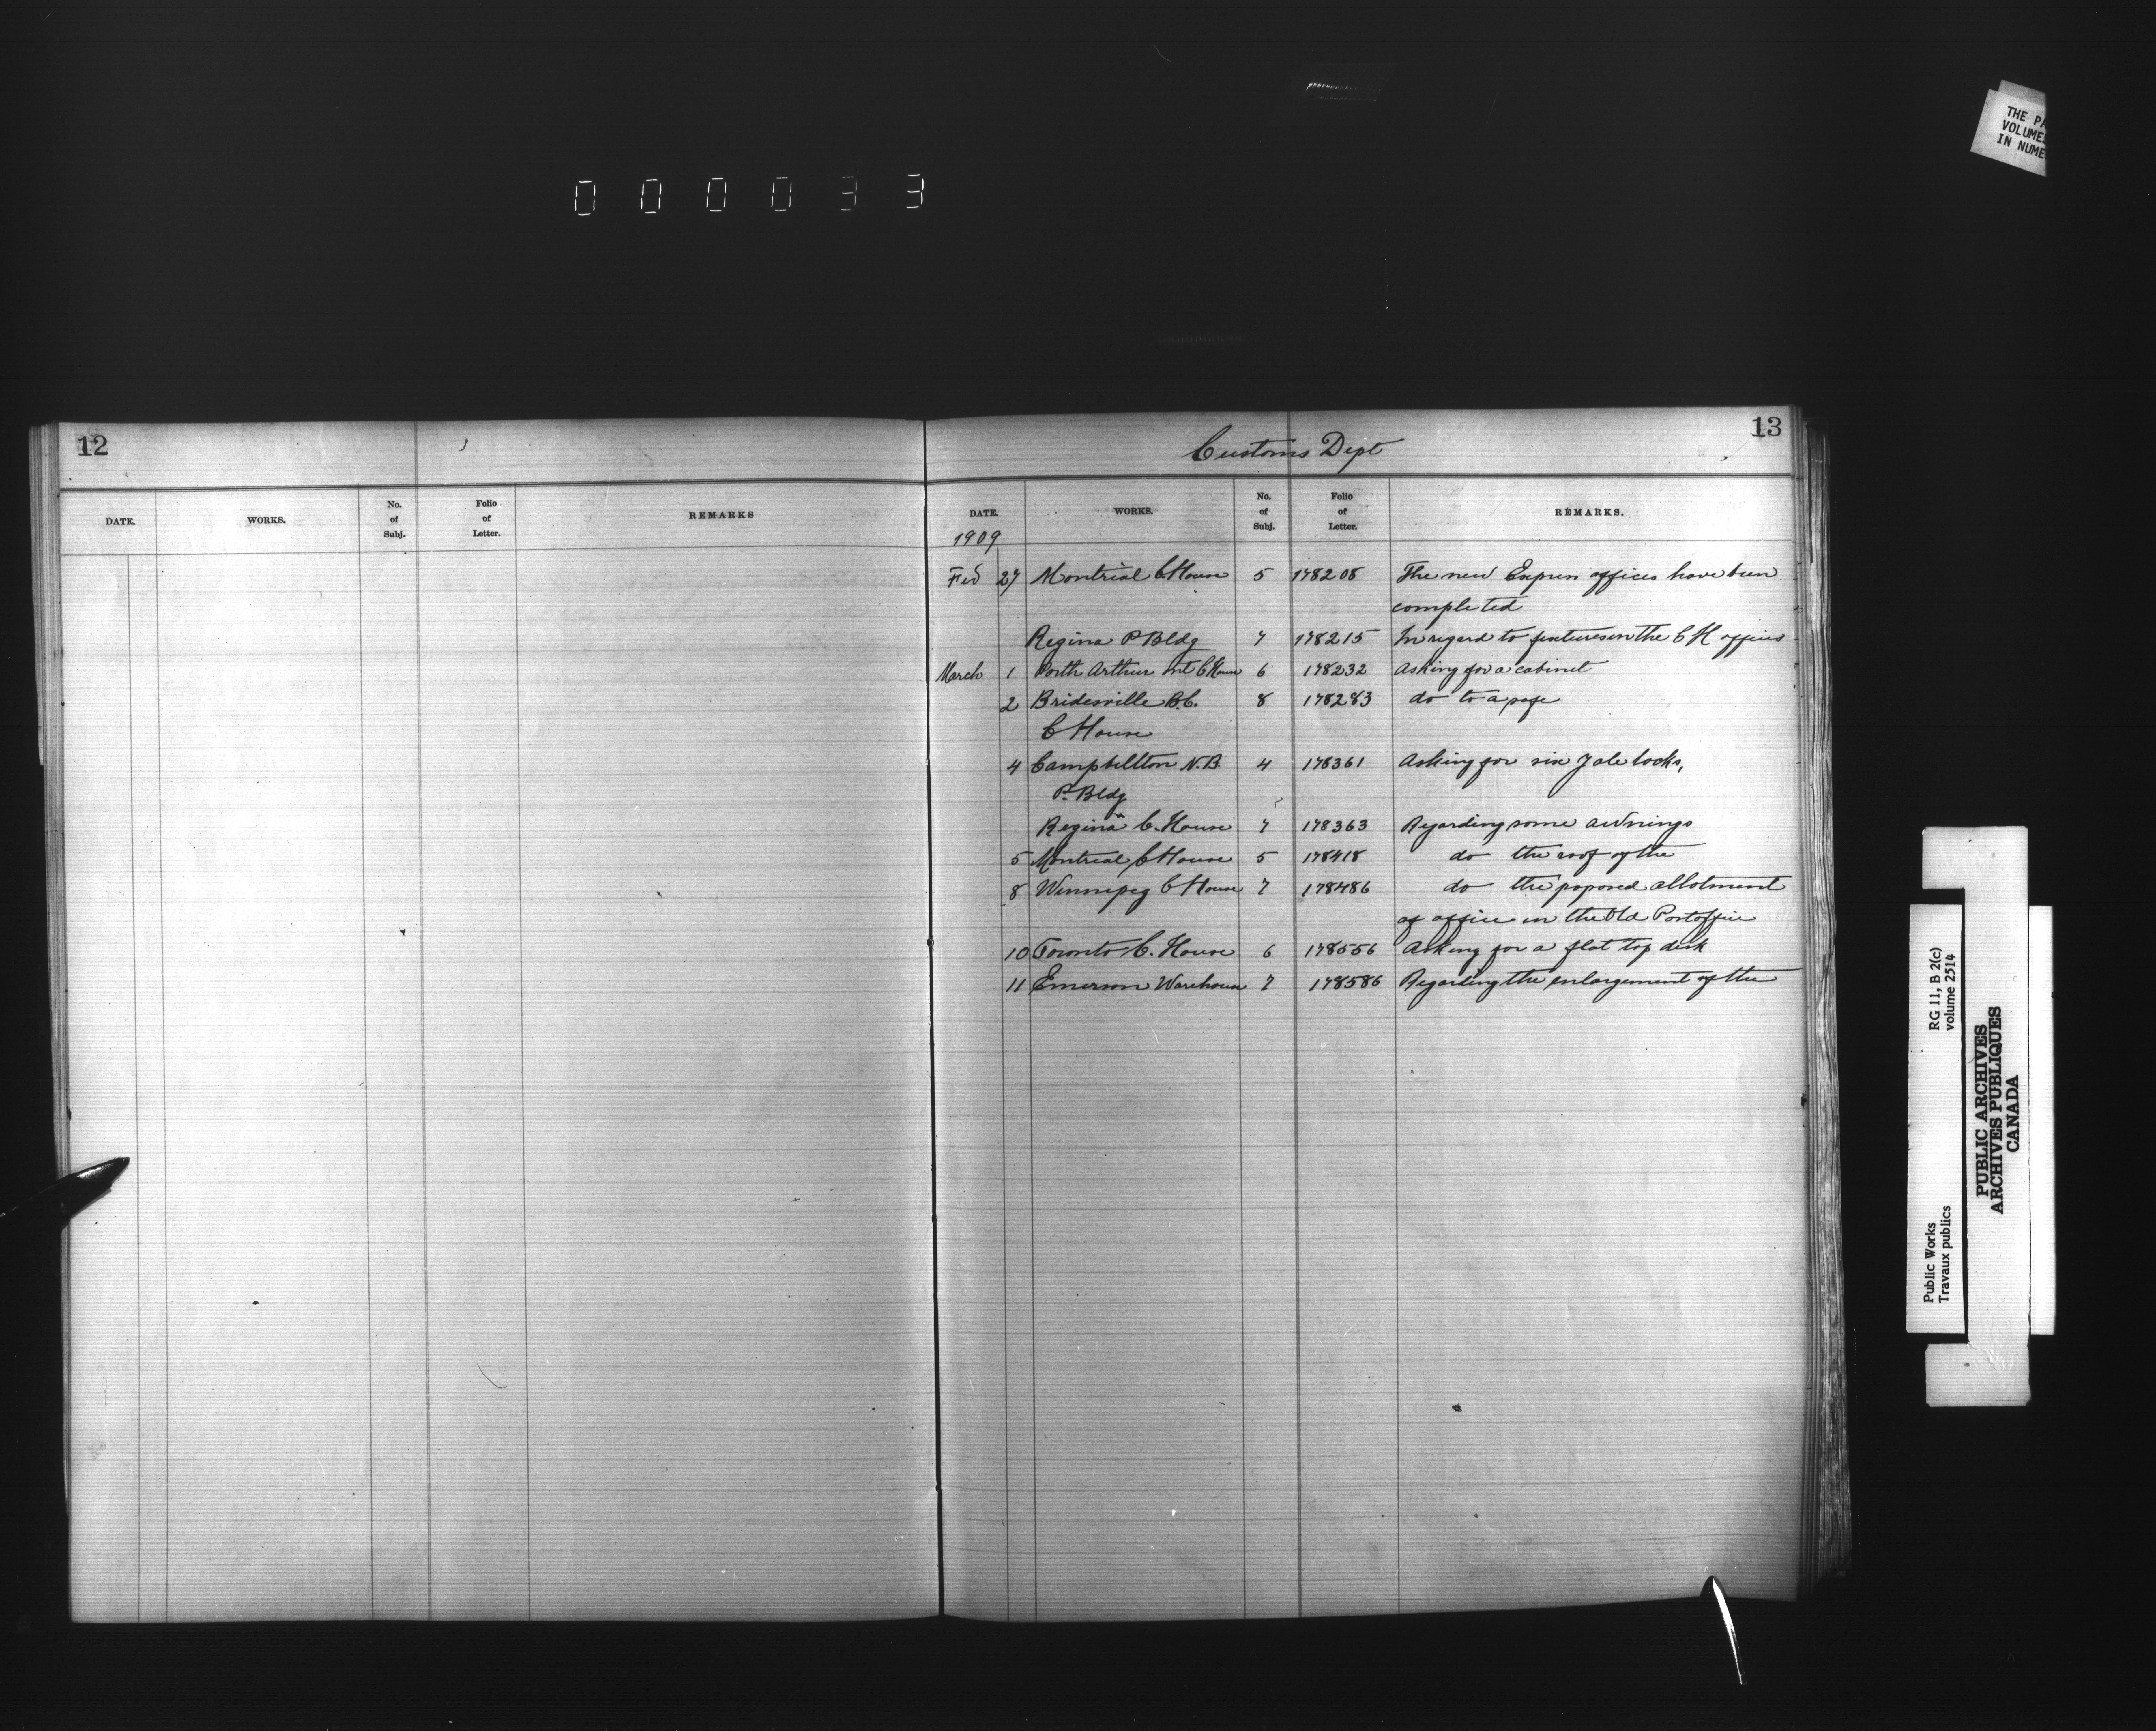 000033
THE PA
VOLUMES
IN NUME
12
DATE. WORKS. No. of Subj. Folio of Letter. REMARKS
13
Customs Dept
DATE. WORKS. No. of Subj. Folio of Letter. REMARKS.
1909
Feb 27 Montreal C. House 5 178208 The new Express offices have been
completed
Regina P Bldg 7 178215 In regard to fixtures in the C H offices
March 1 Porth Arthur Ont C House 6 178232 Asking for a cabinet
2 Bridesville B.C. 8 178283 do to a safe
C House
4 Campbellton N.B. 4 178361 Asking for six Yale locks,
P. Bldg
Regina C. House 7 178363 Regarding some awnings
5 Montreal C House 5 178418 do the roof of the
8 Winnipeg C House 7 178486 do the poposed allotment
of office in the Old Postoffice
10 Toronto C. House 6 178556 Asking for a flat top desk
11 Emerson Warehouse 7 178586 Regarding the enlargement of the
Public Works
Travaux publics
RG 11, B 2(c)
volume 2514
PUBLIC ARCHIVES
ARCHIVES PUBLIQUES
CANADA